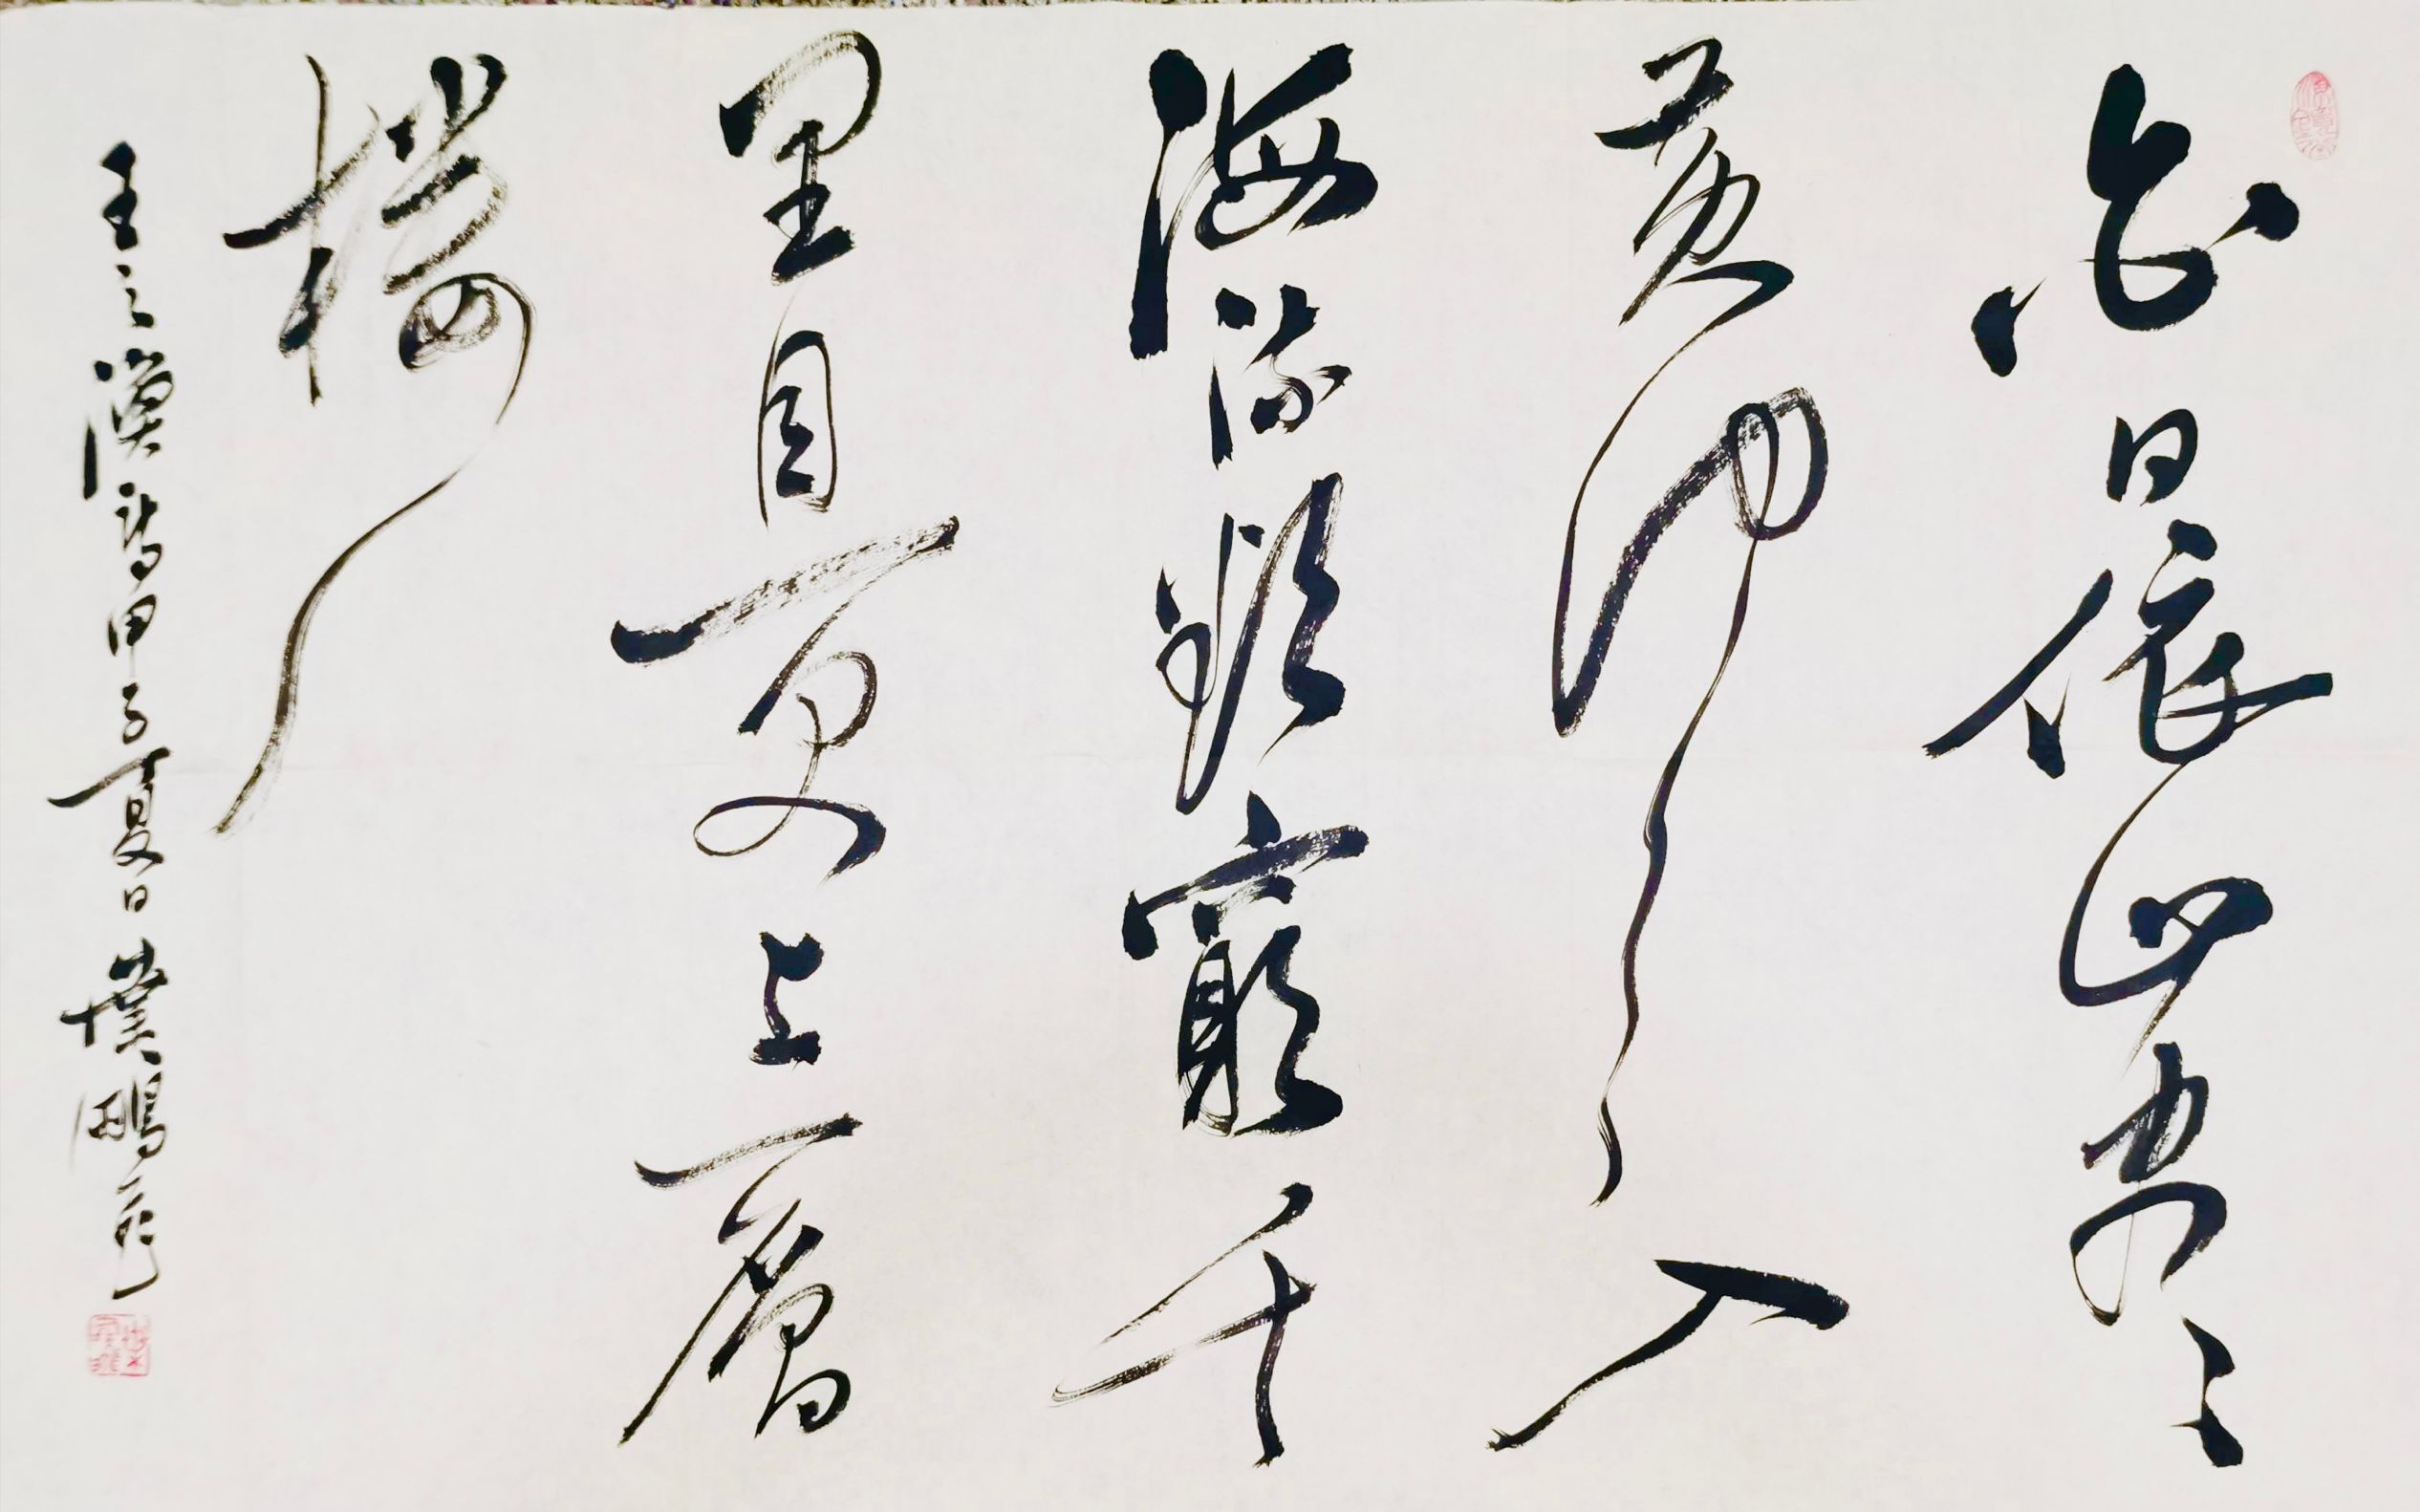 白日依山尽
黄河入
海流欲窮千
里目更上一層
樓
王之渙詩甲子夏日樸鵬飛